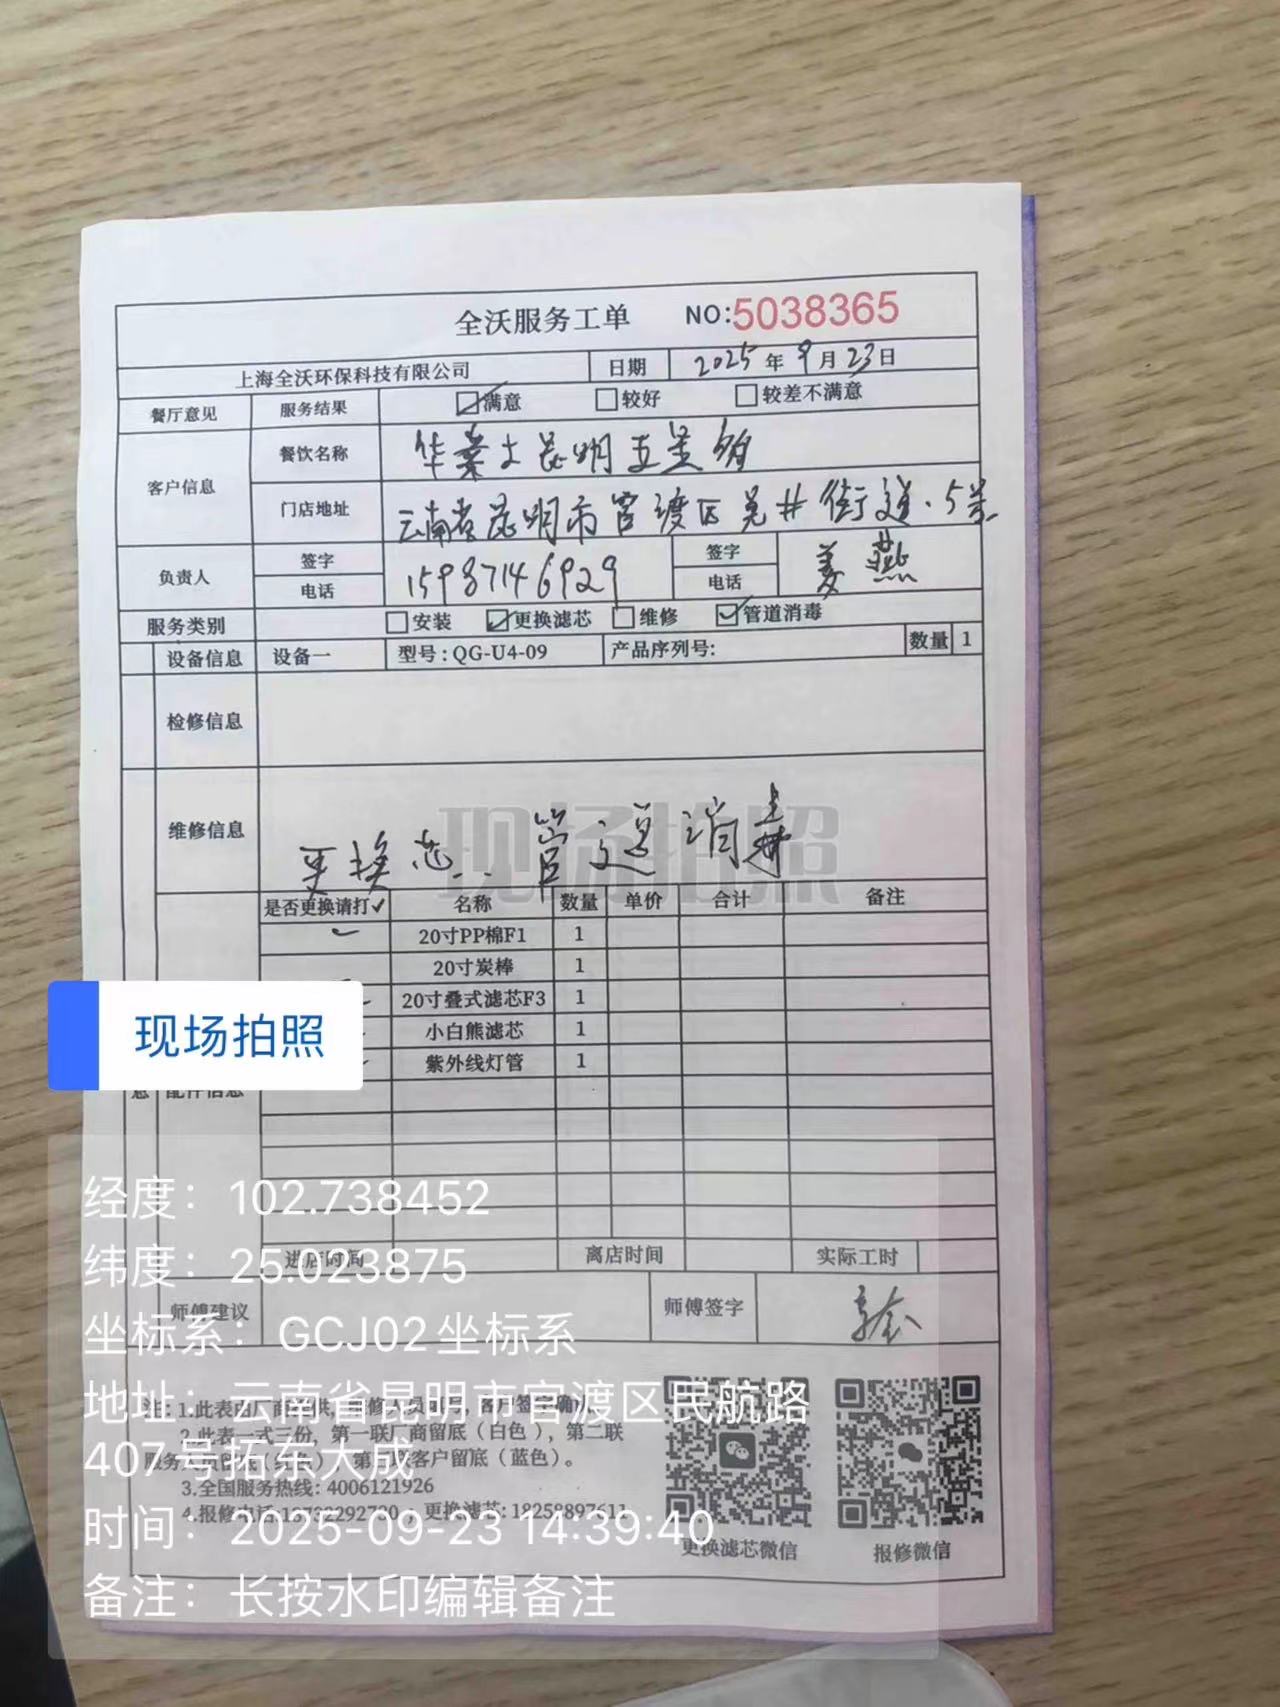 全沃服务工单 NO:5038365
上海全沃环保科技有限公司 日期 2025年9月23日
餐厅意见 服务结果 满意 较好 较差不满意
客户信息 餐饮名称 华莱士昆明五里铺
门店地址 云南省昆明市官渡区 井街道 5号
负责人 签字 签字 姜燕
电话 15987146929 电话
服务类别 安装 更换滤芯 维修 管道消毒
设备信息 设备一 型号:QG-U4-09 产品序列号: 数量 1
检修信息
维修信息 更换芯.. 管道消毒
现场拍照
是否更换请打✓ 名称 数量 单价 合计 备注
20寸PP棉F1 1
20寸炭棒 1
20寸叠式滤芯F3 1
小白熊滤芯 1
紫外线灯管 1
现场拍照
配件信息
进店时间 离店时间 实际工时
师傅建议 师傅签字
经度：102.738452
纬度：25.023875
坐标系：GCJ02坐标系
地址：云南省昆明市官渡区民航路
407号拓东大成
时间：2025-09-23 14:39:40
备注：长按水印编辑备注
注: 1.此表由厂商提供, 维修人员填写, 客户签字确认
2.此表一式三份, 第一联厂商留底(白色), 第二联
服务人员留底(红色) 第三联客户留底(蓝色)。
3.全国服务热线: 4006121926
4.报修电话:13732292730 ; 更换滤芯: 18258897611
更换滤芯微信 报修微信